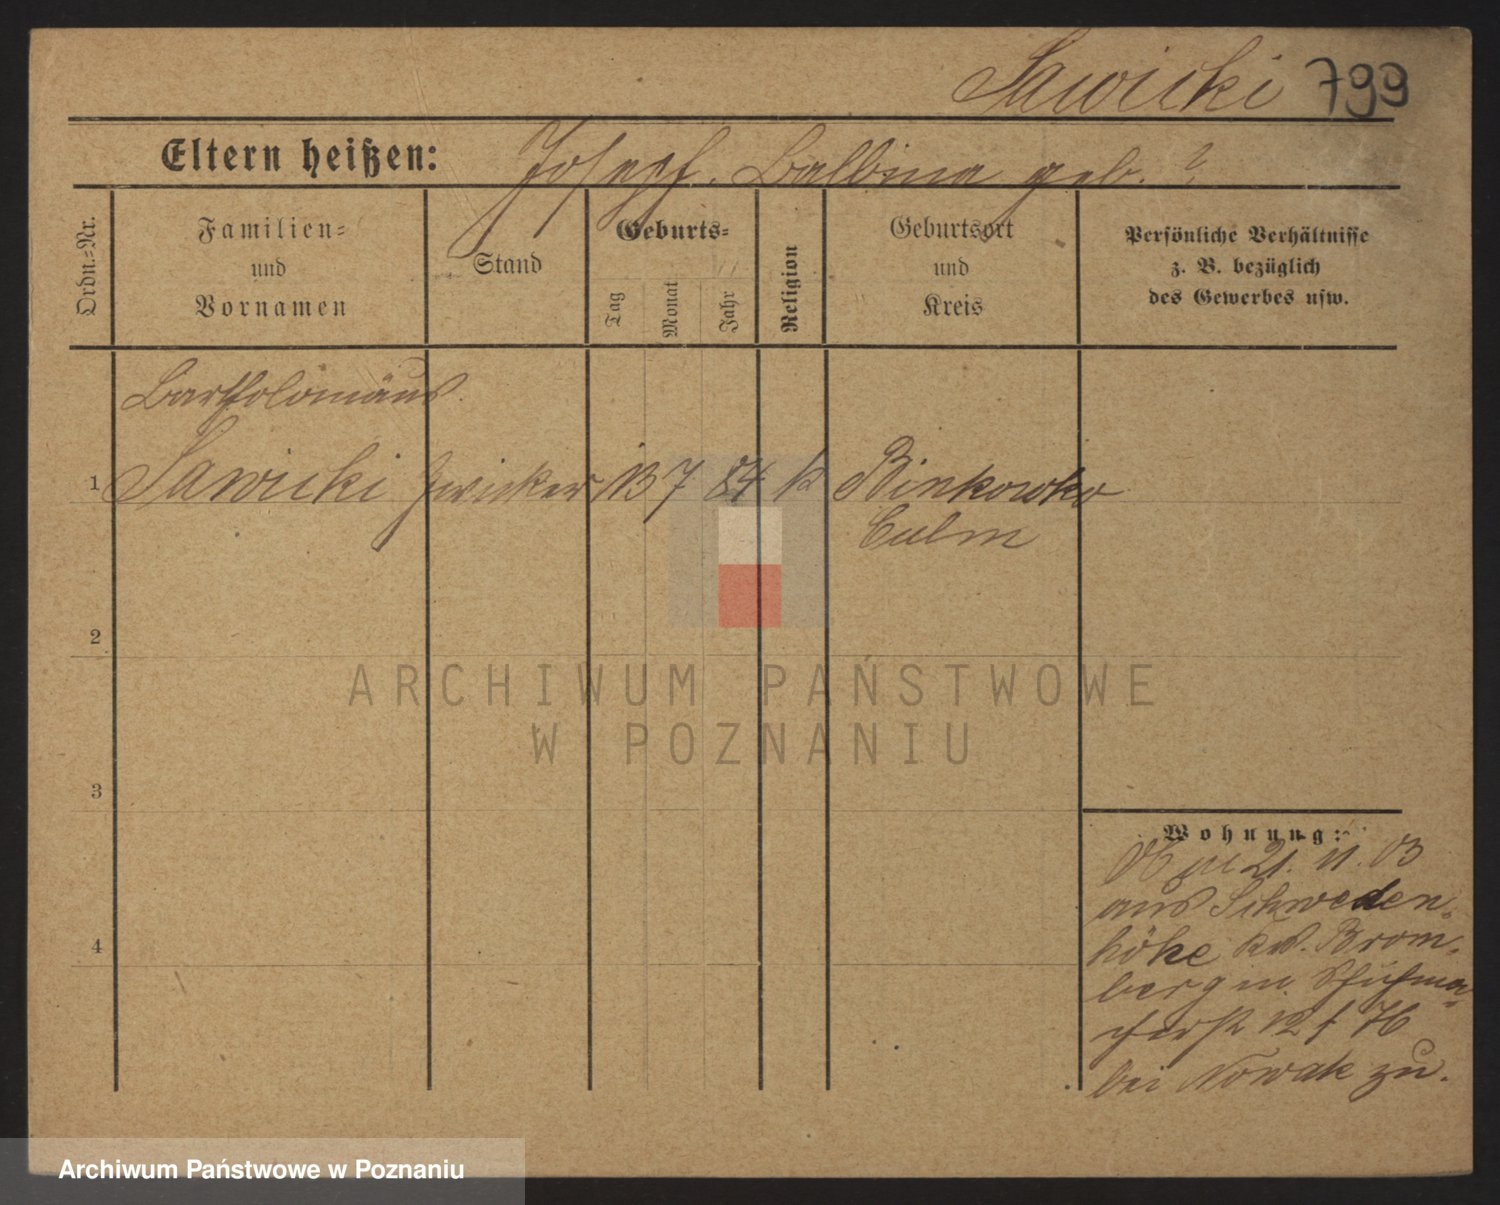 Sawicki 799
Eltern heißen: Josef. Balbina geb. ?
Ordn.-Nr.
Familien-
und
Vornamen
Stand
Geburts-
Tag
Monat
Jahr
Religion
Geburtsort
und
Kreis
Persönliche Verhältnisse
z. B. bezüglich
des Gewerbes usw.
Bartholomäus
1 Sawicki Zwicker 13 7 84 k Binkowko
Culm
2
3
4
Wohnung:
21. 11. 03
aus Schweden-
höhe Krs. Brom-
berg in Schuhma-
cherst 12 f H
bei Nowak zu.
ARCHIWUM PAŃSTWOWE
W POZNANIU
Archiwum Państwowe w Poznaniu